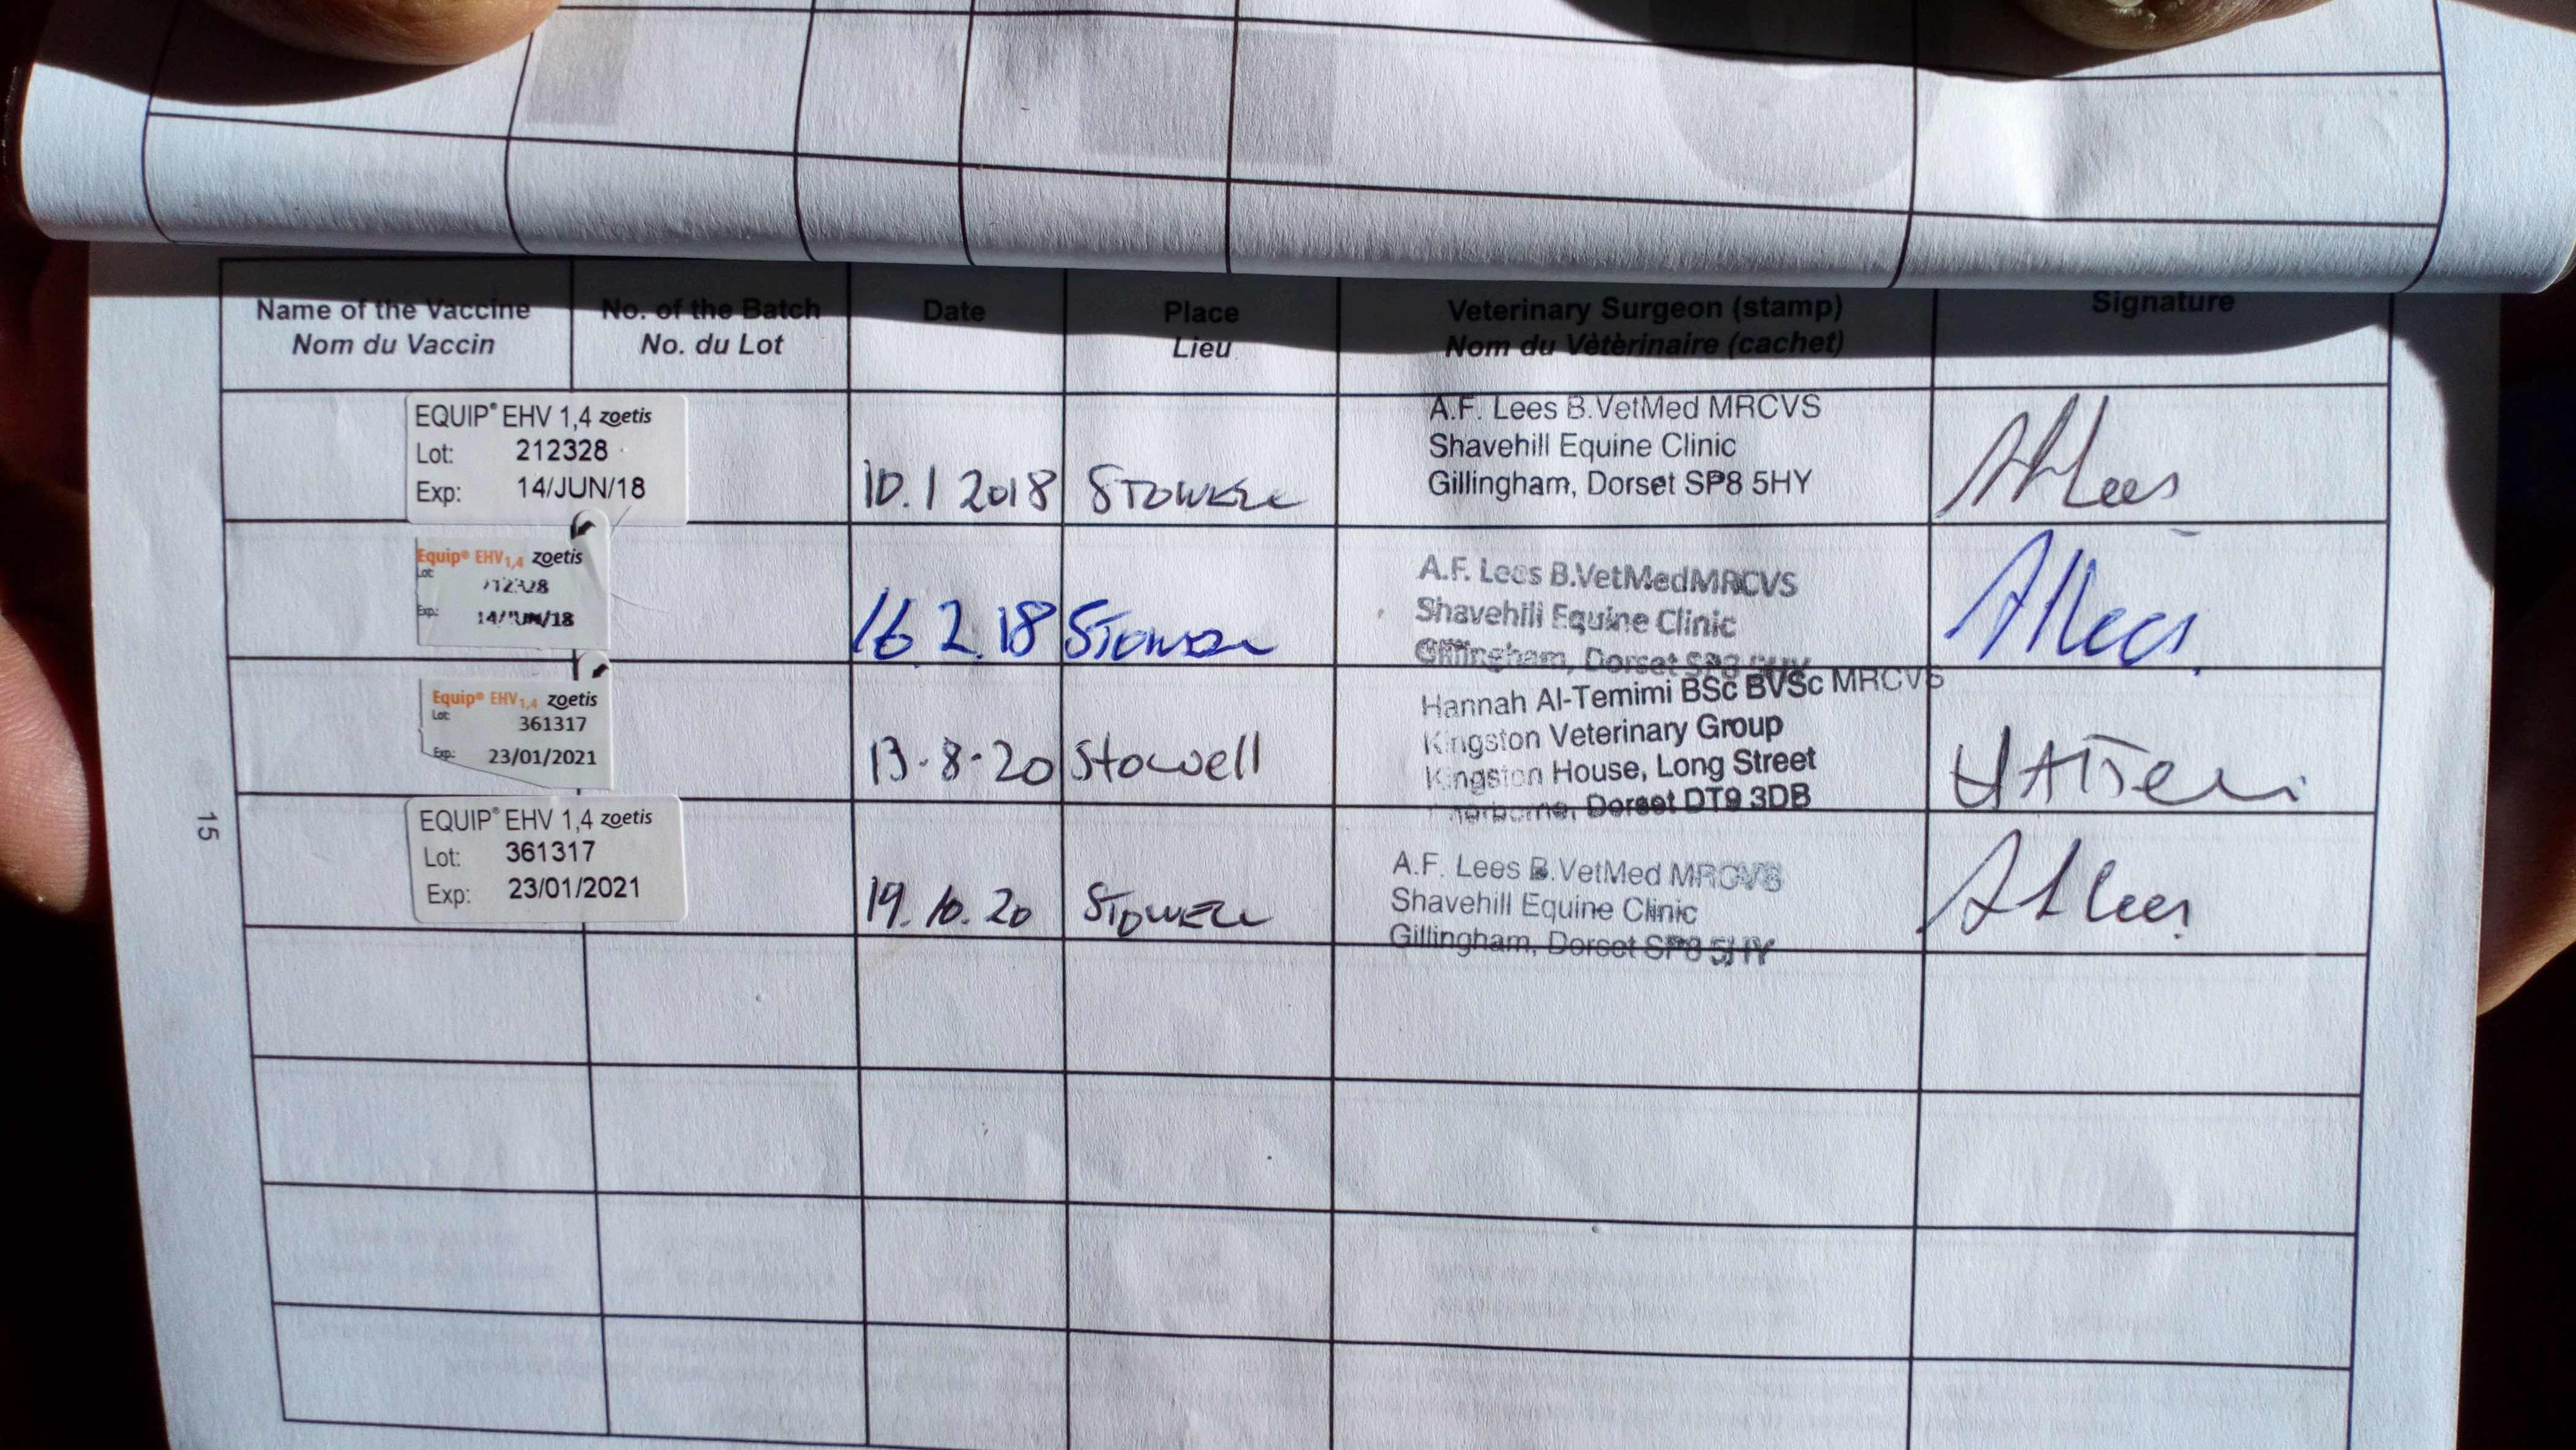 Name of the Vaccine No. of the Batch Date Place Veterinary Surgeon (stamp) Signature
Nom du Vaccin No. du Lot Lieu Nom du Vètèrinaire (cachet)
EQUIP® EHV 1,4 zoetis
Lot: 212328
Exp: 14/JUN/18
10.1 2018 Stowell
A.F. Lees B.VetMed MRCVS
Shavehill Equine Clinic
Gillingham, Dorset SP8 5HY
AFLees
Equip® EHV1,4 zoetis
Lot:
Exp: 14/JUN/18
16.2.18 Stowell
A.F. Lees B.VetMedMRCVS
Shavehill Equine Clinic
Gillingham, Dorset SP8 5HY
AFLees
Equip® EHV1,4 zoetis
Lot: 361317
Exp: 23/01/2021
13-8-20 Stowell
Hannah Al-Temimi BSc BVSc MRCVS
Kingston Veterinary Group
Kingston House, Long Street
Dorset DT9 3DB
EQUIP® EHV 1,4 zoetis
Lot: 361317
Exp: 23/01/2021
19.10.20 Stowell
A.F. Lees B.VetMed MRCVS
Shavehill Equine Clinic
Gillingham, Dorset SP8 5HY
AFLees
15